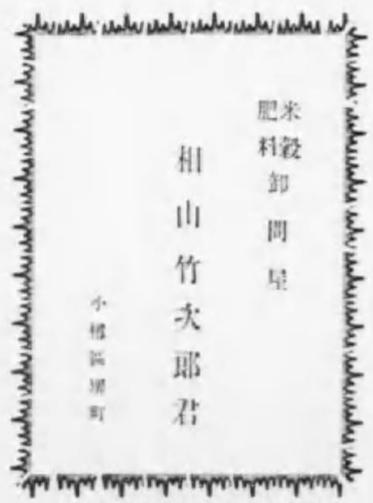 米穀
肥料
卸問屋
相山竹次郎君
小樽區堺町